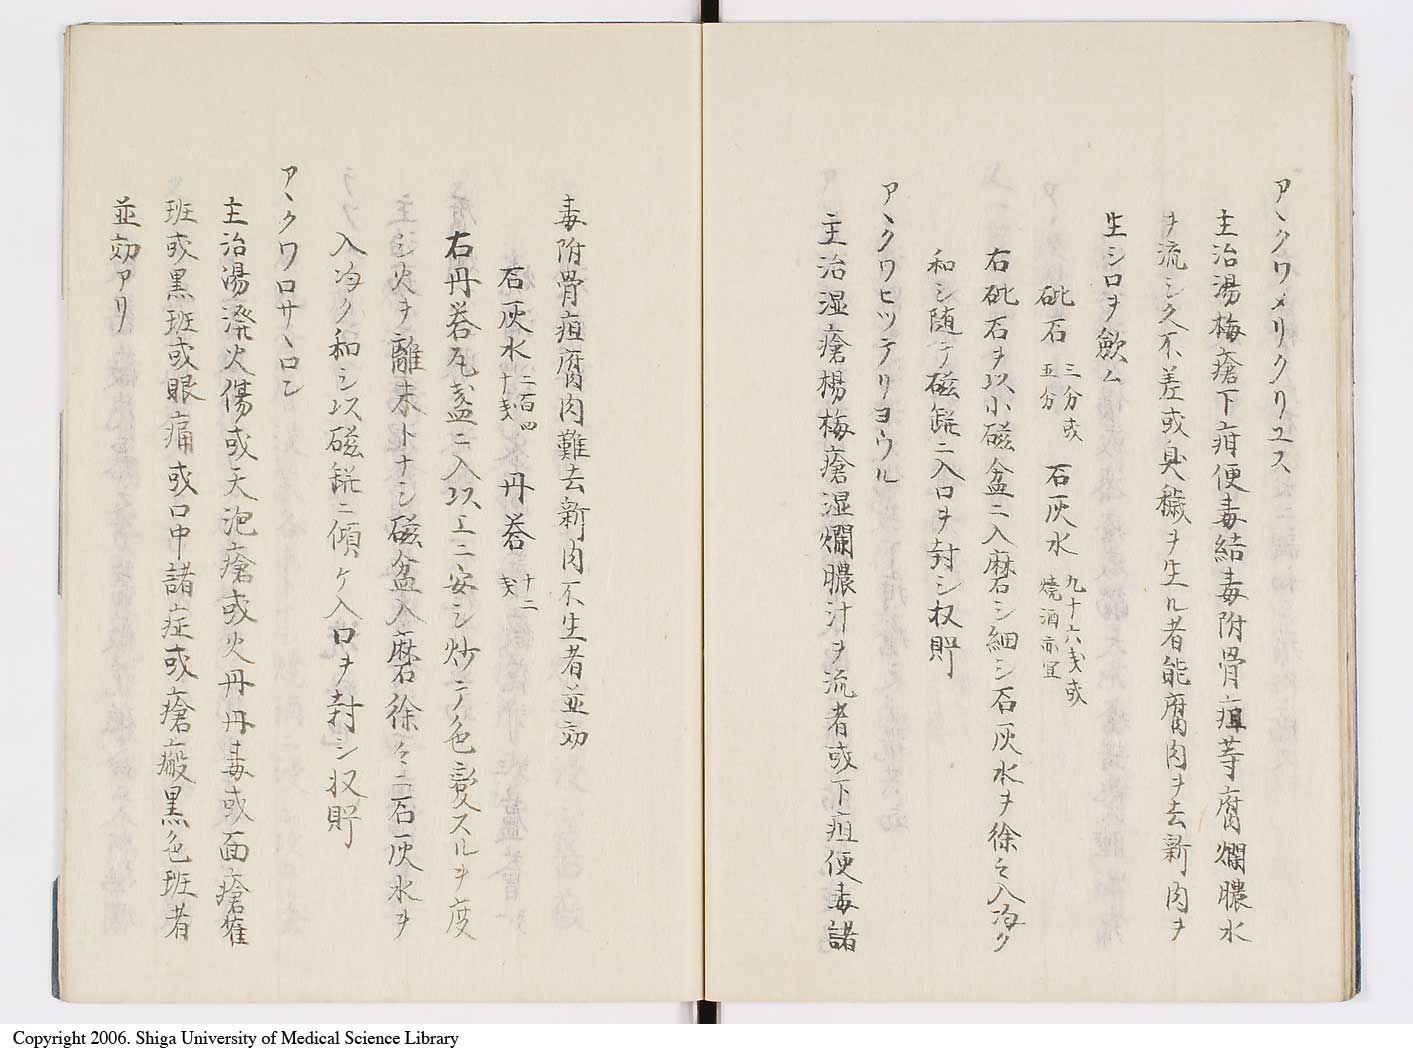 アヽクワメリクリユス
主治湯梅瘡下疳便毒結毒附骨疽等腐爛膿水
ヲ流シ久不差或臭穢ヲ生ル者能腐肉ヲ去新肉ヲ
生シロヲ歛ム
砒石 三分或五分 石灰水 九十六戔或焼酒亦宜
右砒石ヲ以小磁盆ニ入磨シ細シ石灰水ヲ徐々入冷ク
和シ随テ磁罐ニ入口ヲ封シ収貯
アヽクワヒツテリヨウル
主治湿瘡楊梅瘡湿爛膿汁ヲ流者或下疽便毒諸
毒附骨疽腐肉難去新肉不生者並効
石灰水 二百四十戔 丹礬 十二戔
右丹礬瓦盞ニ入以上ニ安シ炒テ色変スルヲ度
シ火ヲ離末トナシ磁盆入磨徐々ニ石灰水ヲ
入冷ク和シ以磁罐ニ傾ケ入口ヲ封シ収貯
アヽクワロサヽロン
主治湯溌火傷或天泡瘡或火丹丹毒或面瘡雀
班或黒班或眼痛或口中諸症或瘡瘢黒色班者
並効アリ
Copyright 2006. Shiga University of Medical Science Library